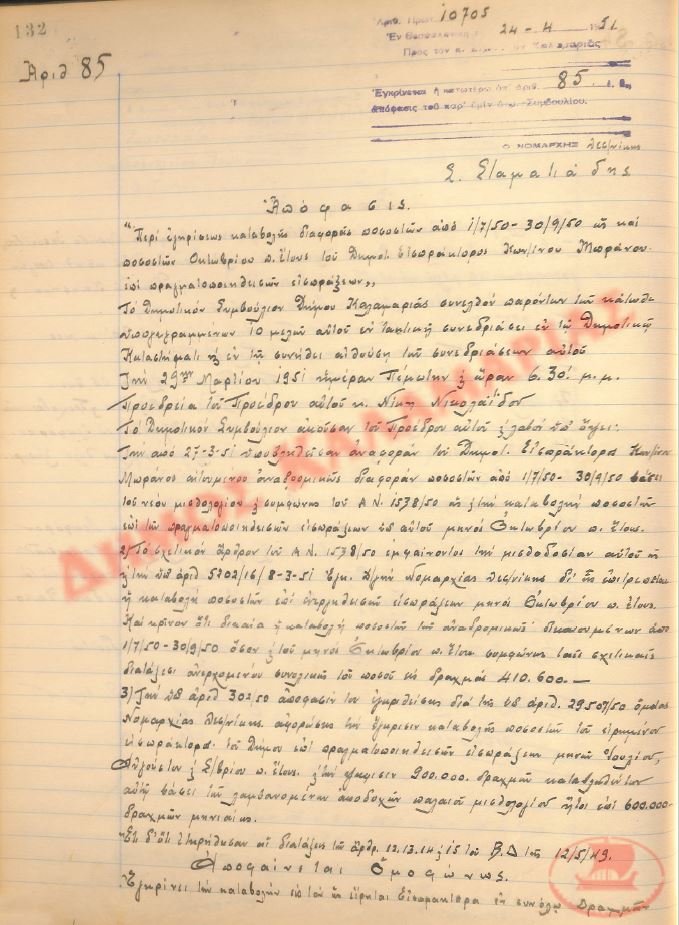 132
Ἀριθ. Πρωτ. 10705
Ἐν Θεσσαλονίκῃ 24-4-1951
Πρὸς τὸν κ. Δήμαρχον Καλαμαριᾶς
Ἀριθ 85
Ἐγκρίνεται ἡ κατωτέρω ὑπ' ἀριθ. 85 ἐ. ἔ.
ἀπόφασις τοῦ παρ' ὑμῖν Δημ. Συμβουλίου.
Ο ΝΟΜΑΡΧΗΣ Θεσ/νίκης
Σ. Σταματιάδης
Ἀπόφασις.
"Περὶ ἐγκρίσεως καταβολῆς διαφορᾶς ποσοστῶν ἀπὸ 1/7/50-30/9/50 ὡς καὶ
ποσοστῶν Ὀκτωβρίου π. ἔτους τοῦ Δημοτ. Εἰσπράκτορος Κων/τίνου Μωράνου
ἐπὶ πραγματοποιηθεισῶν εἰσπράξεων"
Τὸ Δημοτικὸν Συμβούλιον Δήμου Καλαμαριᾶς συνελθὸν παρόντων τῶν κάτωθι
ὑπογεγραμμένων 10 μελῶν αὐτοῦ ἐν τακτικῇ συνεδριάσει ἐν τῷ Δημοτικῷ
Καταστήματι καὶ ἐν τῇ συνήθει αἰθούσῃ τῶν συνεδριάσεων αὐτοῦ
Τὴν 29ην Μαρτίου 1951 ἡμέραν Πέμπτην καὶ ὥραν 6.30' μ.μ.
Προεδρείᾳ τοῦ Προέδρου αὐτοῦ κ. Νίκη Νικολαΐδου
Τὸ Δημοτικὸν Συμβούλιον ἀκοῦσαν τοῦ Προέδρου αὐτοῦ καὶ λαβὸν ὑπ' ὄψει:
Τὴν ἀπὸ 27-3-51 ὑποβληθεῖσαν ἀναφορὰν τοῦ Δημοτ. Εἰσπράκτορα Κων/τίνου
Μωράνου αἰτουμένου ἀναδρομικῶς διαφορὰν ποσοστῶν ἀπὸ 1/7/50-30/9/50 βάσει
τοῦ νέου μισθολογίου καὶ συμφώνως τοῦ Α.Ν. 1538/50 ὡς καὶ τὴν καταβολὴν ποσοστῶν
ἐπὶ τῶν πραγματοποιηθεισῶν εἰσπράξεων ὑπ' αὐτοῦ μηνὸς Ὀκτωβρίου π. ἔτους.
2) Τὸ σχετικὸν ἄρθρον τοῦ Α.Ν. 1538/50 ἐμφαίνοντος τὴν μισθοδοσίαν αὐτοῦ ὡς
καὶ τὴν ὑπ' ἀριθ 5702/16/8-3-51 ἐγκ. Δ/γὴν Νομαρχίας Θεσ/νίκης δι' ἧς ἐπιτρέπεται
ἡ καταβολὴ ποσοστῶν ἐπὶ ἐνεργηθεισῶν εἰσπράξεων μηνὸς Ὀκτωβρίου π. ἔτους.
Καὶ κρῖνον ὅτι δικαία ἡ καταβολὴ ποσοστῶν τῶν ἀναδρομικῶς δικαιουμένων ἀπὸ
1/7/50-30/9/50 ὅσον καὶ τοῦ μηνὸς Ὀκτωβρίου π. ἔτους συμφώνως ταῖς σχετικαῖς
διατάξεσι ἀνερχομένου συνολικῶς τοῦ ποσοῦ εἰς δραχμὰς 410.600.—
3) Τὴν ὑπ' ἀριθ 302/50 ἀπόφασίν του ἐγκριθεῖσης διὰ τῆς ὑπ' ἀριθ. 29507/50 ὁμοίας
Νομαρχίας Θεσ/νίκης ἀφορώσης τὴν ἔγκρισιν καταβολῆς ποσοστῶν τοῦ εἰρημένου
εἰσπράκτορα τοῦ Δήμου ἐπὶ πραγματοποιηθεισῶν εἰσπράξεων μηνῶν Ἰουλίου,
Αὐγούστου καὶ Σ/βρίου π. ἔτους καὶ τὴν ψήφισιν 900.000 δραχμῶν καταβληθέντων
αὐτῷ βάσει τῶν λαμβανομένων ἀποδοχῶν παλαιοῦ μισθολογίου ἤτοι ἐπὶ 600.000-
δραχμῶν μηνιαίως.
Ἐπειδὴ ἐτηρήθησαν αἱ διατάξεις τῶν ἄρθρ. 12.13.14 καὶ 15 τοῦ Β.Δ τῆς 12/5/49.
Ἀποφαίνεται Ὁμοφώνως.
Ἐγκρίνει τὴν καταβολὴν εἰς τὸν ὡς εἴρηται Εἰσπράκτορα ἐν συνόλῳ Δραχμῶν
ΔΗΜΟΣ ΚΑΛΑΜΑΡΙΑΣ